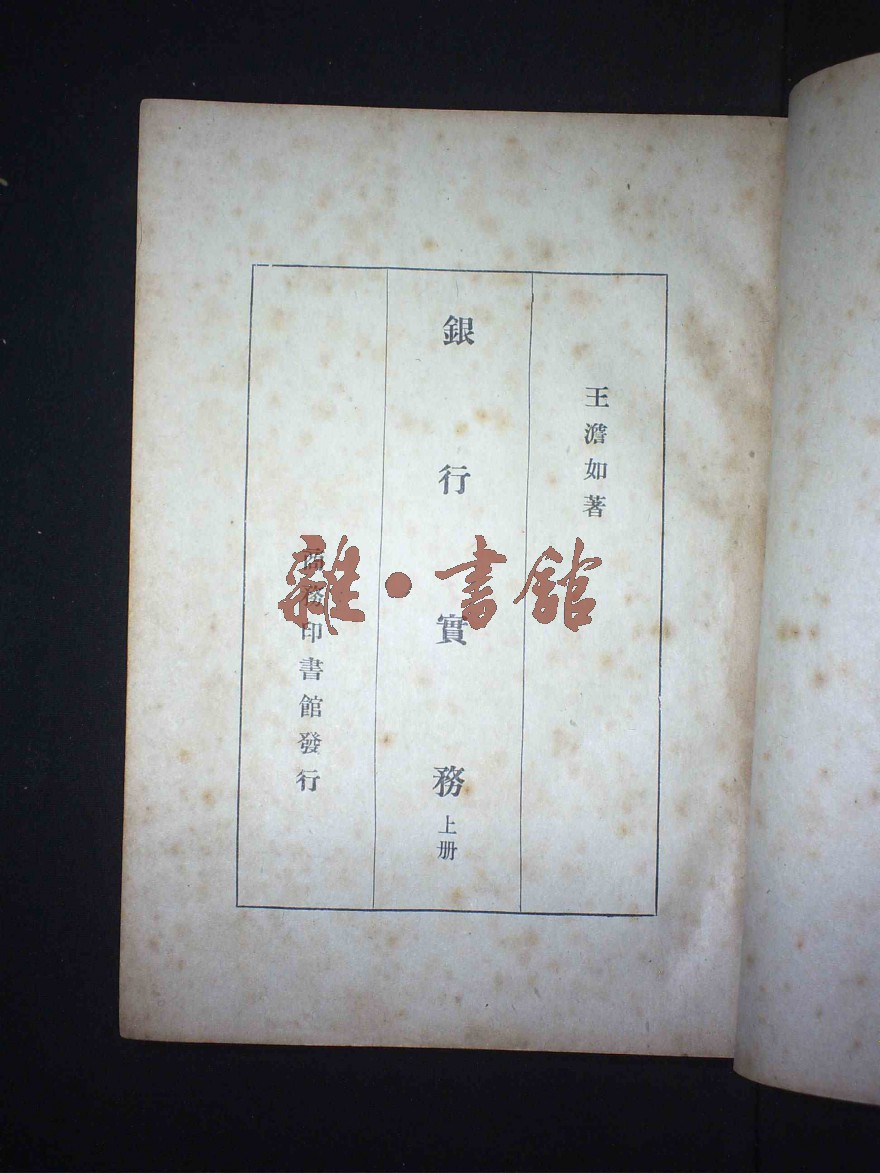 王澹如著
銀行實務上册
商務印書館發行
雜·書館